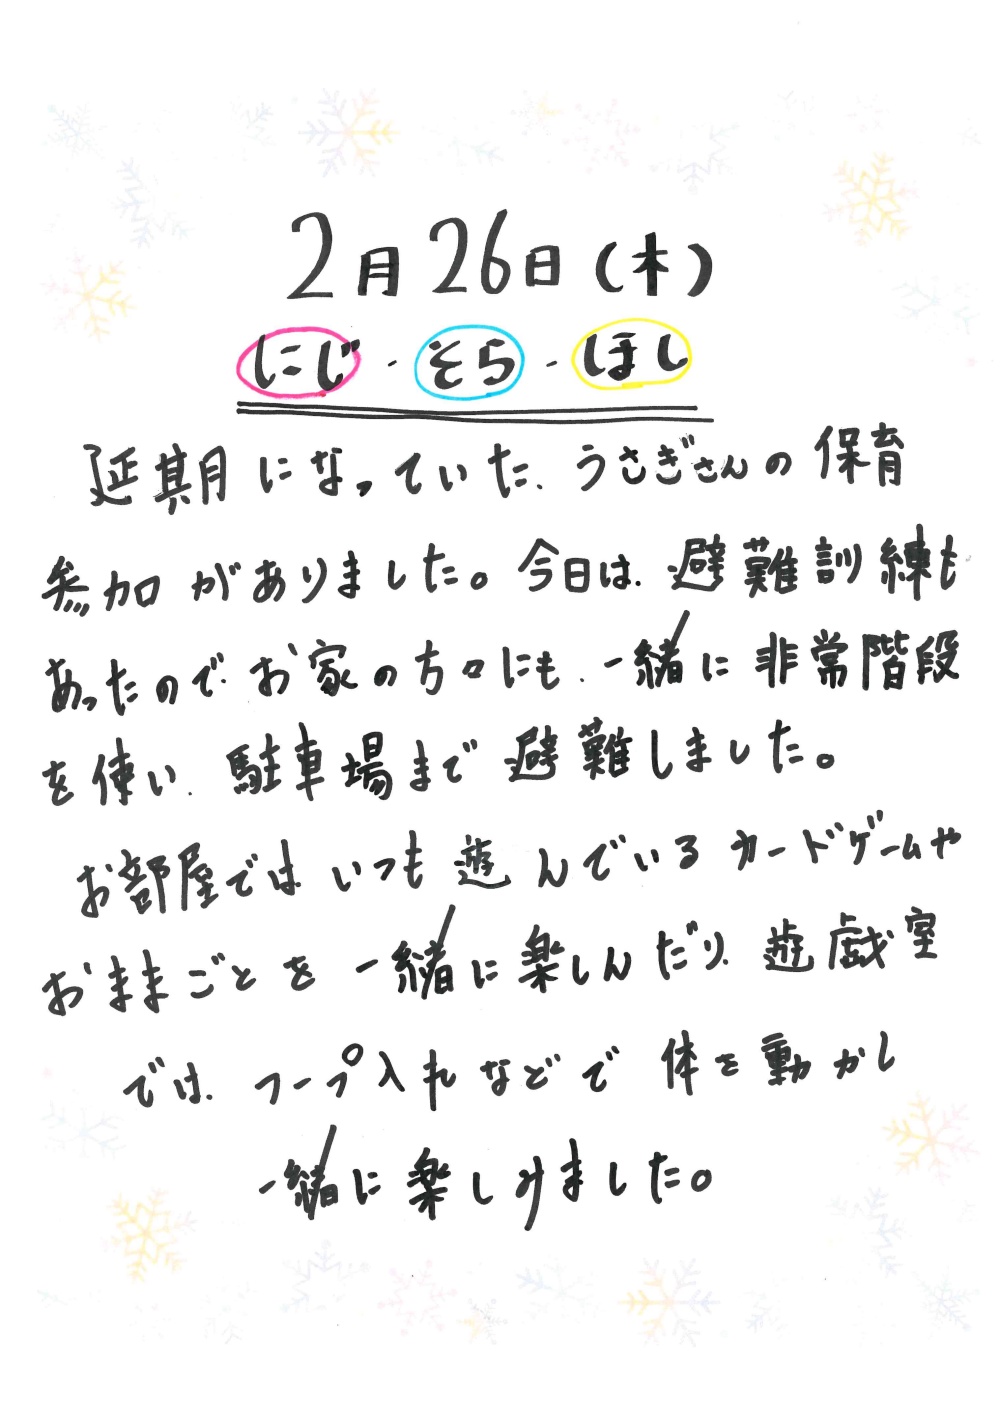 2月26日(木)
にじ・そら・ほし
延期になっていた、うさぎさんの保育
参加がありました。今日は、避難訓練も
あったので、お家の方々にも、一緒に非常階段
を使い、駐車場まで避難しました。
お部屋では、いつも遊んでいるカードゲームや
おままごとを一緒に楽しんだり、遊戯室
では、フープ入れなどで体を動かし
一緒に楽しみました。